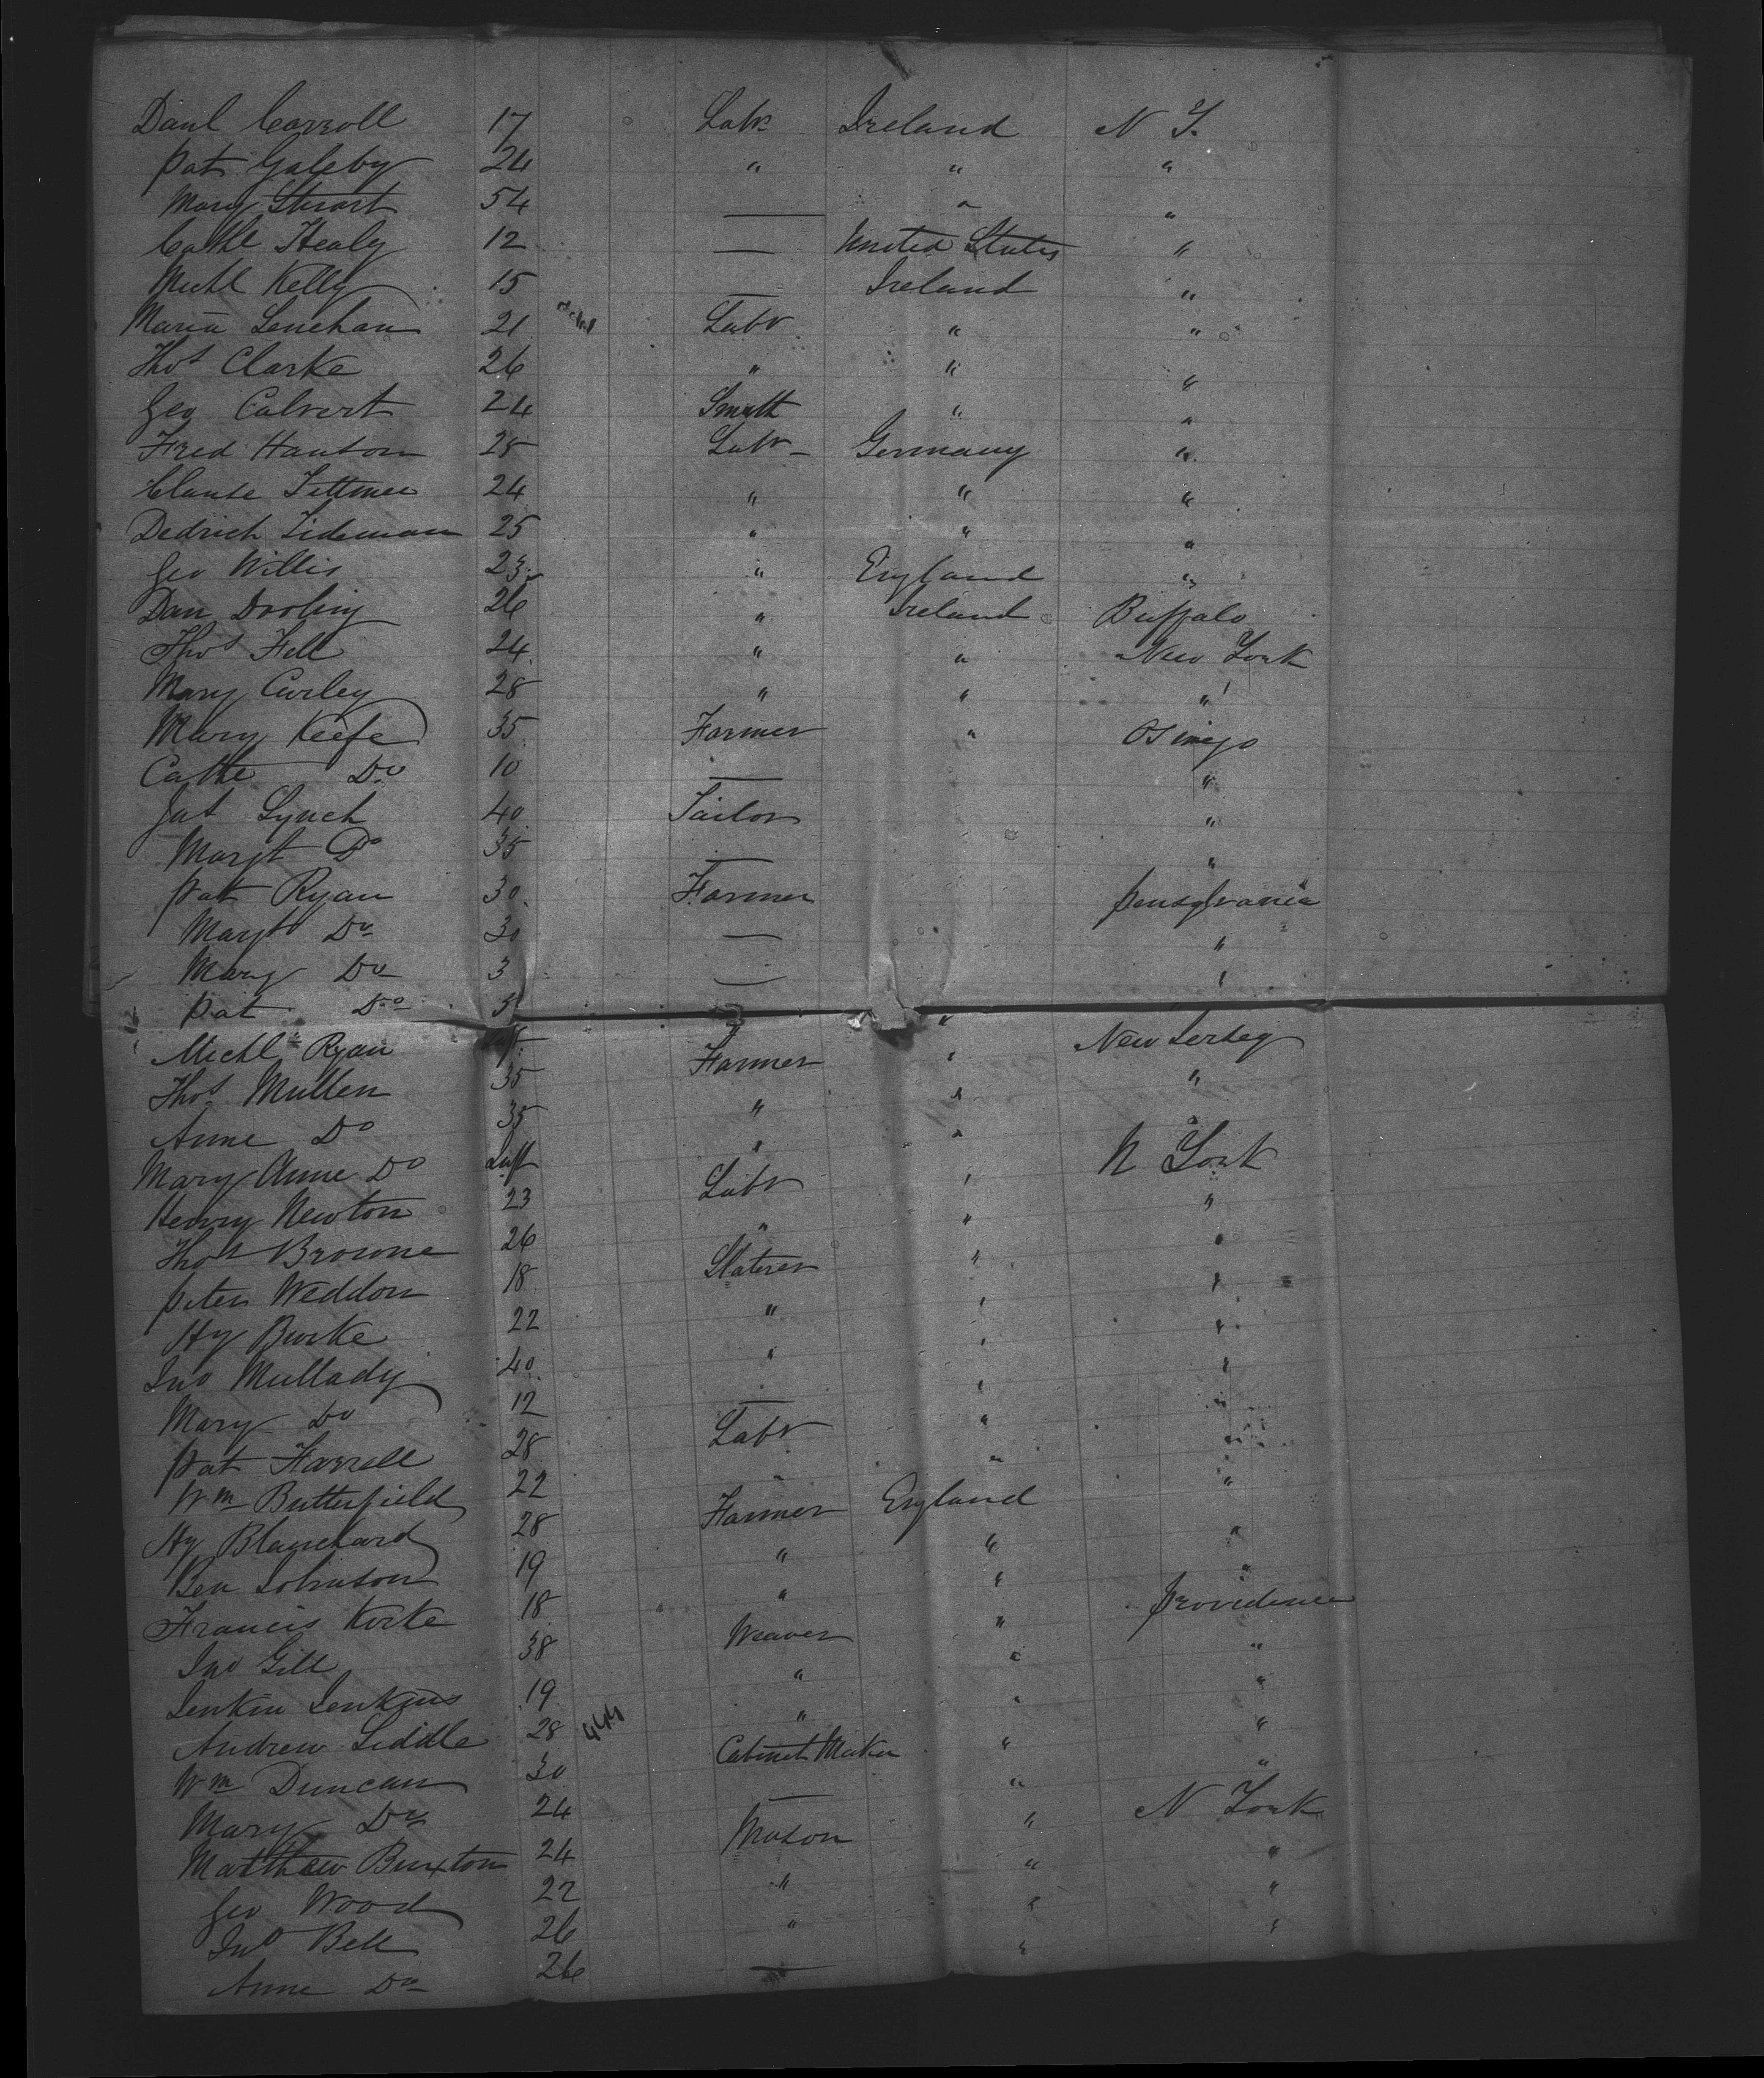 Danl Carroll 17 Labr Ireland N Y.
Pat Galeby 24 " " "
Mary Stuart 54 — " "
Cathe Healy 12 — United States "
Michl Kelly 15 — Ireland "
Maria Lenehan 21 Labr " "
Thos Clarke 26 " " "
Geo Calvert 24 Smith " "
Fred Hanton 25 Labr Germany "
Clause Tettmer 24 " " "
Dedrich Tideman 25 " " "
Geo Willis 23 " England "
Dan Dooling 26 " Ireland Buffalo
Thos Fell 24 " " New York
Mary Curley 28 " " "
Mary Keefe 35 Farmer "
Cathe Do 10 — "
Jas Lynch 40 Tailor "
Margt Do 35 — "
Pat Ryan 30 Farmer Pensylvania
Margt Do 30 — "
Mary Do 3 — "
Pat Do "
Michl Ryan Farmer " New Jersey
Thos Mullen 35 " " "
Anne Do 35 " " "
Mary Anne Do Inft N York
Henry Newton 23 Labr " "
Thos Browne 26 " " "
Peter Weddon 18 Slaterer " "
Hy Burke 22 " " "
Jno Mullady 40 " " "
Mary Do 12 — " "
Pat Farrell 28 Labr " "
Wm Butterfield 22 " " "
Hy Blanchard 28 Farmer England "
Ben Johnson 19 " " "
Francis Korke 18 " " Providence
Jno Gill 38 Weaver " "
Jenkin Jenkins 19 " " "
Andrew Liddle 28 444 " " "
Wm Duncan 30 Cabinet Maker " "
Mary Do 24 — " N York
Matthew Buxton 24 Mason " "
Geo Wood 22 " " "
Jno Bell 26 " " "
Anne Do 26 — "